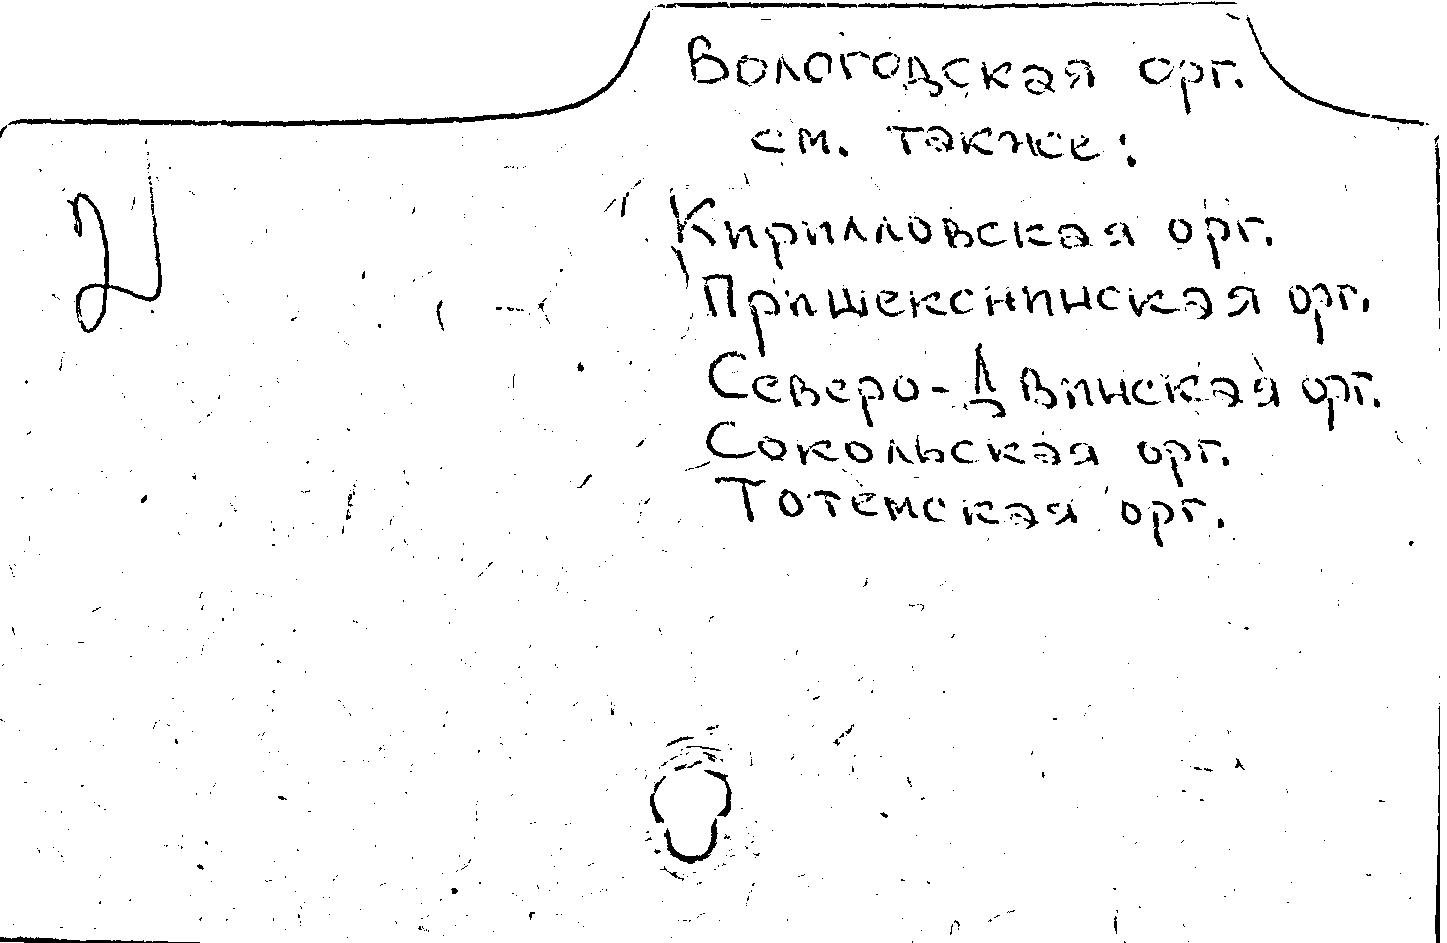 Вологодская орг.
см. также:
Кирилловская орг.
Пришекснинская орг.
Северо-Двинская орг.
Сокольская орг.
Тотемская орг.